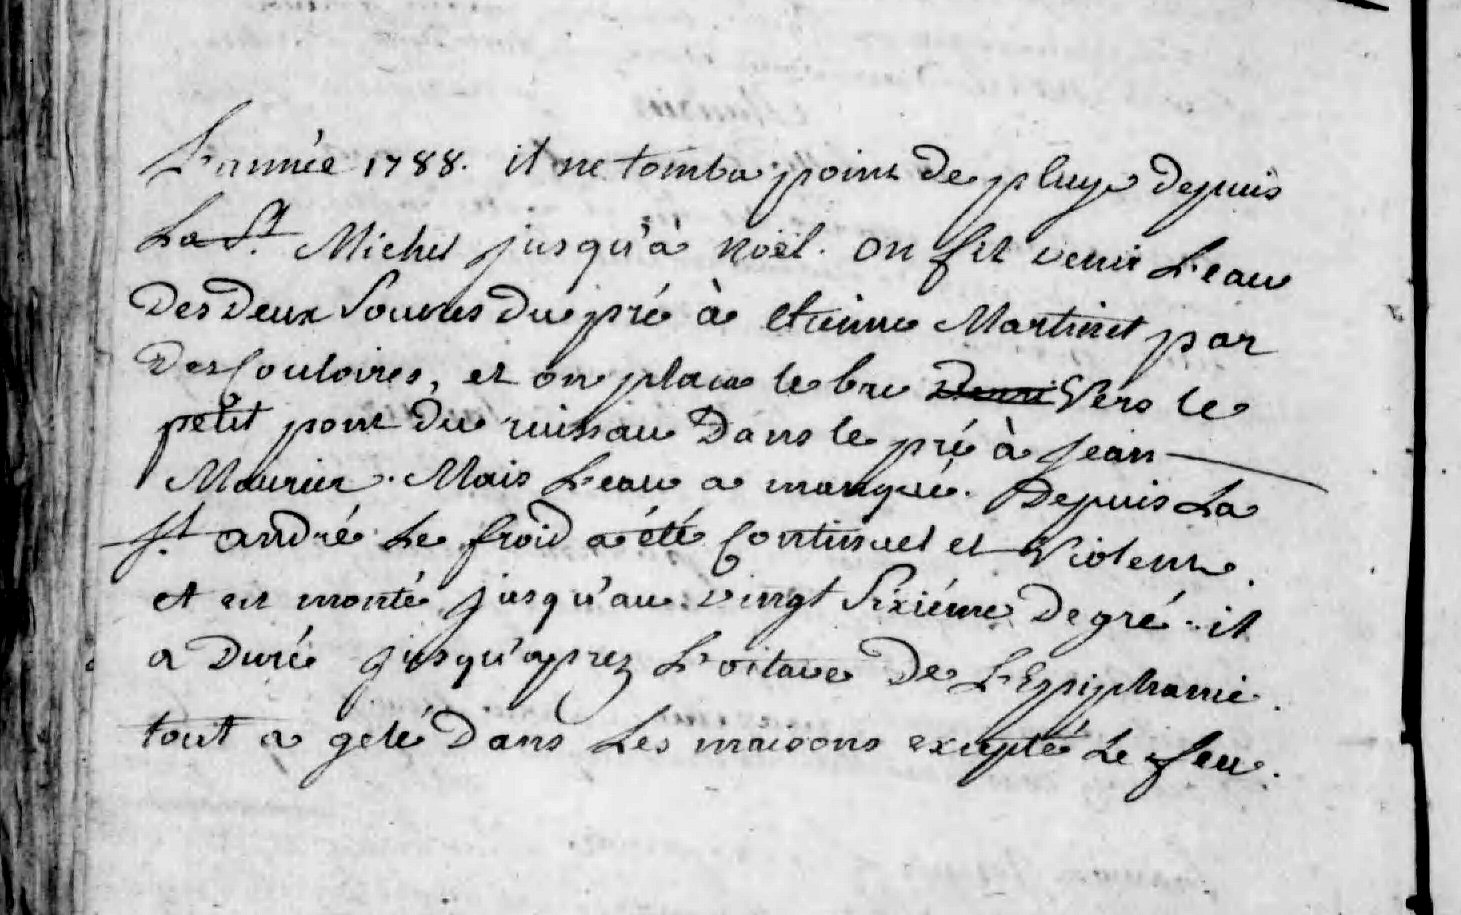 L'année 1788. il ne tomba point de pluye depuis
La St. Michel jusqu'à noël. on fit venir L'eau
des deux sources du pré à etienne Martinet par
des couloires, et on plaça le bac vers le
petit pont du ruisseau dans le pré à jean
Meunier. Mais L'eau a manqué. Depuis La
St. andré Le froid a été continuel et violent.
et est monté jusqu'au vingt sixiéme degré. il
a duré jusqu'aprez L'octave de L'Epiphanie.
tout a gelé dans Les maisons excepté Le feu.